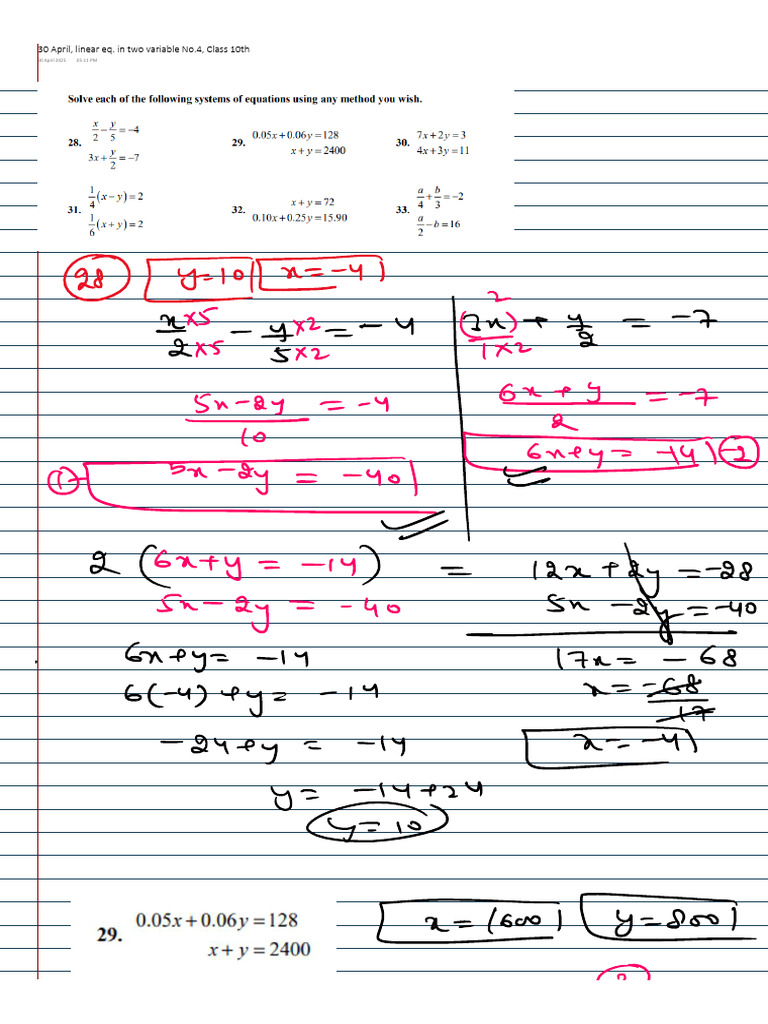 30 April, linear eq. in two variable No.4, Class 10th
30 April 2025 05:11 PM
Solve each of the following systems of equations using any method you wish.
28. x/2 − y/5 = −4
3x + y/2 = −7
29. 0.05x + 0.06y = 128
x + y = 2400
30. 7x + 2y = 3
4x + 3y = 11
31. 1/4 (x − y) = 2
1/6 (x + y) = 2
32. x + y = 72
0.10x + 0.25y = 15.90
33. a/4 + b/3 = −2
a/2 − b = 16
28 y=10 x=-4
x×5/2×5 − y×2/5×2 = −4
5x−2y/10 = −4
① 5x−2y = −40
2(3x)/1×2 + y/2 = −7
6x+y/2 = −7
6x+y = −14 −②
2 (6x+y = −14) = 12x+2y = −28
5x−2y = −40 5x −2y = −40
6x+y = −14 17x = −68
6(−4)+y = −14 x = −68/17
−24+y = −14 x = −4
y = −14+24
y = 10
29. 0.05x + 0.06y = 128
x + y = 2400
x = 1600 y = 800